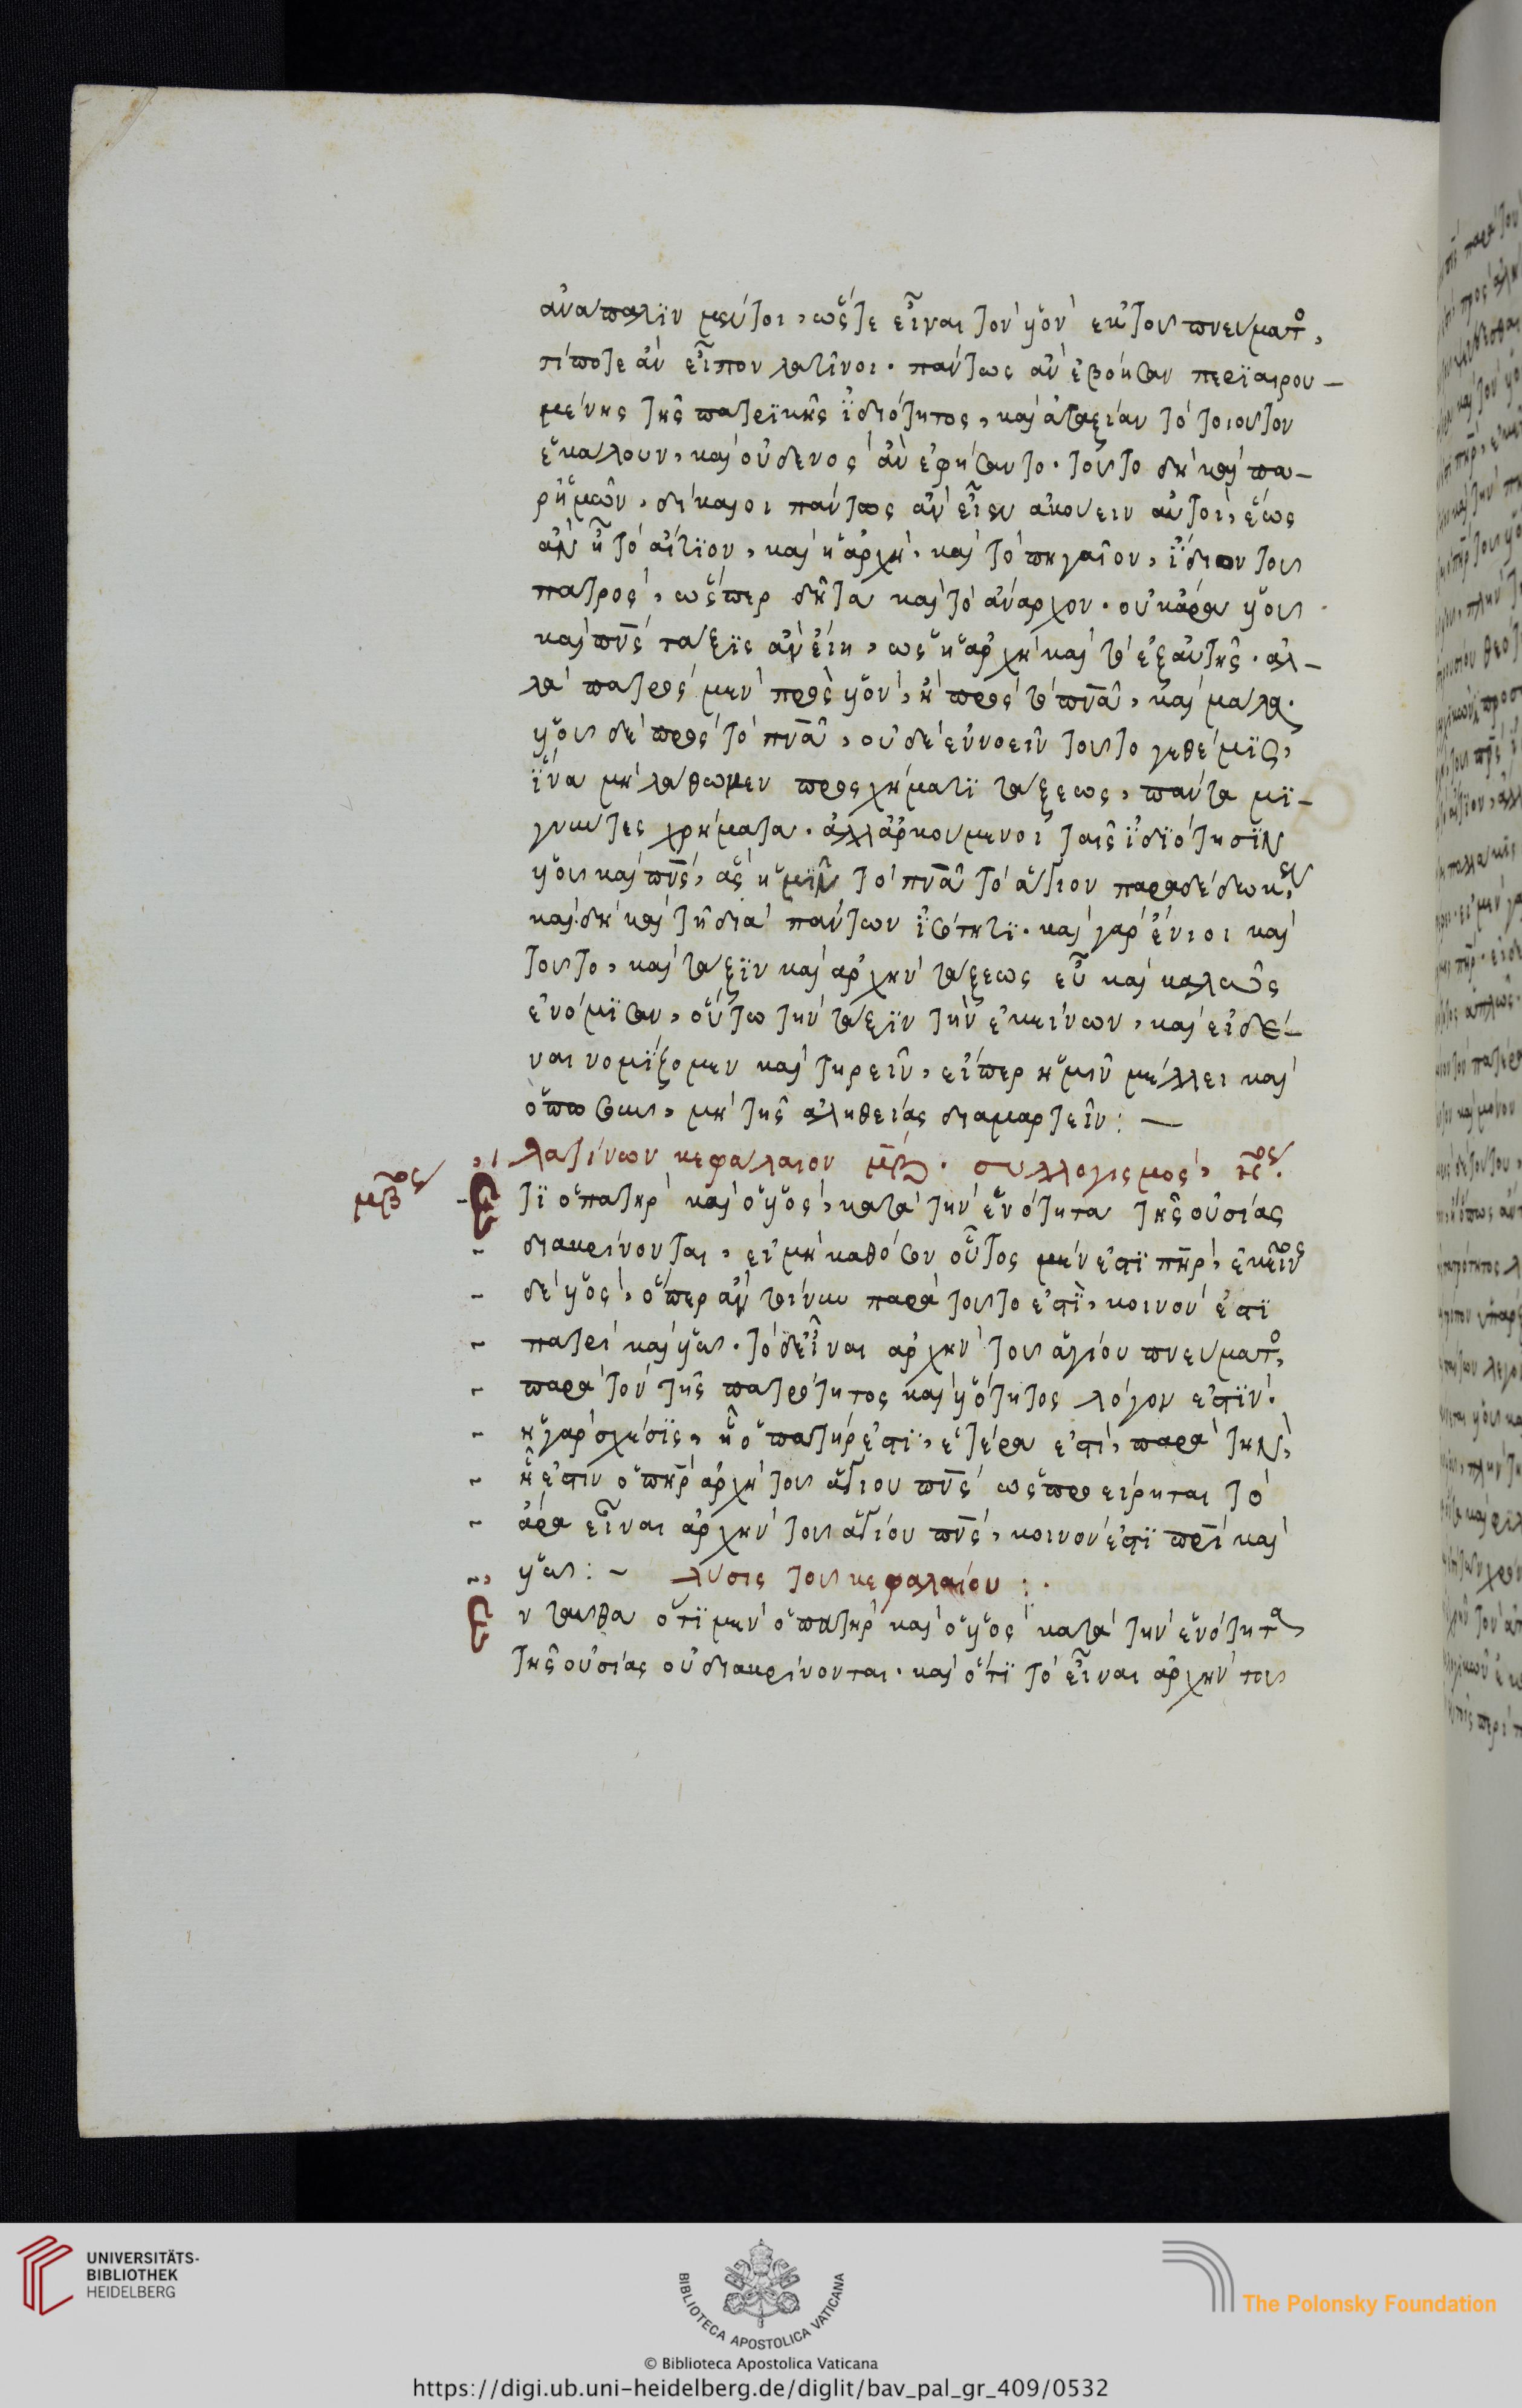 ἀνάπαλϊν μέντοι, ὥστε εἶναι τὸν ὑὸν ἐκ τοῦ πνεύματο,
τί ποτε ἂν εἶπον λατῖνοι. πάντως ἂν ἐβόησαν περϊαιρου-
μένης τῆς πατρϊκῆς ἰδιότητος, καὶ ἀταξίαν τὸ τοιοῦτον
ἐκάλουν, καὶ οὐδενὸς ἂν ἐφείσαντο. τοῦτο δὴ καὶ πα-
ρ' ἡμῶν, δίκαιοι πάντως ἂν εἶεν ἀκούειν αὐτοί, ἕως
ἂν ᾖ τὸ αἴτϊον, καὶ ἡ ἀρχὴ, καὶ τὸ πηγαῖον, ἴδιον τοῦ
πατρὸς, ὥσπερ δῆτα καὶ τὸ ἄναρχον. οὐκ ἄρα ὑοῦ
καὶ πνς τάξϊς ἂν εἴη, ὡς ἡ ἀρχὴ καὶ τὰ ἐξ αὐτῆς. ἀλ-
λὰ πατρὸς μὲν πρὸς ὑὸν, ἢ πρὸς τὸ πνα, καὶ μάλα.
ὑοῦ δὲ πρὸς τὸ πνα, οὐδὲ ἐννοεῖν τοῦτό γε θέμϊς,
ἵνα μὴ λάθωμεν προσχήματϊ τάξεως, πάντα μϊ-
γνύντες χρήματα. ἀλλ' ἀρκούμενοι ταῖς ἰδϊότησϊν
ὑοῦ καὶ πνς, ἃς ἡμῖν τὸ πνα τὸ ἅγιον παραδέδωκεν,
καὶ δὴ καὶ τῇ διὰ πάντων ἰσότητϊ. καὶ γὰρ ἔνιοι καὶ
τοῦτο, καὶ τάξϊν καὶ ἀρχὴν τάξεως εὖ καὶ καλῶς
ἐνόμϊσαν, οὕτω τὴν τάξϊν τὴν ἐκείνων, καὶ εἰδέ-
ναι νομίζομεν καὶ τηρεῖν, εἴπερ ἡμῖν μέλλει καὶ
ὁπωσοῦν, μὴ τῆς ἀληθείας διαμαρτεῖν: —
λατίνων κεφάλαιον μβ. συλλογισμὸς,
μβος
τϊ ὁ πατὴρ καὶ ὁ ὑὸς, κατὰ τὴν ἑνότητα τῆς οὐσίας
διακρίνονται, εἰ μὴ καθόσον οὗτος μέν ἐστϊ πηρ, ἐκεῖνος
δὲ ὑὸς, ὅπερ ἂν τοίνυν παρὰ τοῦτο ἐστϊ, κοινὸν ἐστϊ
πατρὶ καὶ ὑῶ. τὸ δὲ εἶναι ἀρχὴν τοῦ ἁγίου πνεύματο,
παρὰ τὸν τῆς πατρότητος καὶ ὑότητος λόγον ἐστϊν.
ἡ γὰρ σχέσϊς, ᾗ ὁ πατὴρ ἐστϊ, ἑτέρα ἐστὶ, παρὰ τὴν,
ᾗ ἐστιν ὁ πηρ ἀρχὴ τοῦ ἁγίου πνς ὡς προείρηται τὸ
ἄρα εἶναι ἀρχὴν τοῦ ἁγίου πνς, κοινὸν ἐστϊ πρὶ καὶ
ὑῶ: ~ λύσις τοῦ κεφαλαίου :.
νταῦθα ὅτϊ μὲν ὁ πατὴρ καὶ ὁ ὑὸς κατὰ τὴν ἑνότητα
τῆς οὐσίας οὐ διακρίνονται. καὶ ὅτϊ τὸ εἶναι ἀρχὴν τοῦ
UNIVERSITÄTS-
BIBLIOTHEK
HEIDELBERG
BIBLIOTECA APOSTOLICA VATICANA
The Polonsky Foundation
© Biblioteca Apostolica Vaticana
https://digi.ub.uni-heidelberg.de/diglit/bav_pal_gr_409/0532